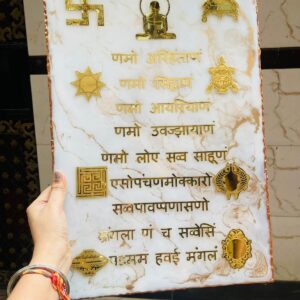 णमो अरिहंताणं
णमो सिद्धाणं
णमो आयरियाणं
णमो उवज्झायाणं
णमो लोए सव्व साहूणं
एसोपंचणमोक्कारो
सव्वपावप्पणासणो
मंगला णं च सव्वेसिं
हवई मंगलं